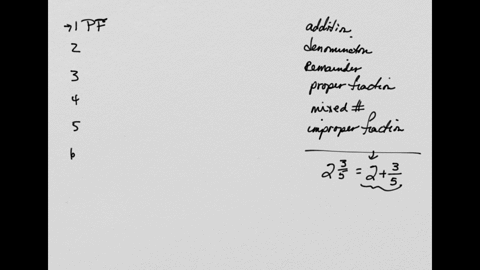 →1 PF
2
3
4
5
6
addition
denominator
Remainder
proper fraction
mixed #
improper fraction
2 3/5 = 2 + 3/5